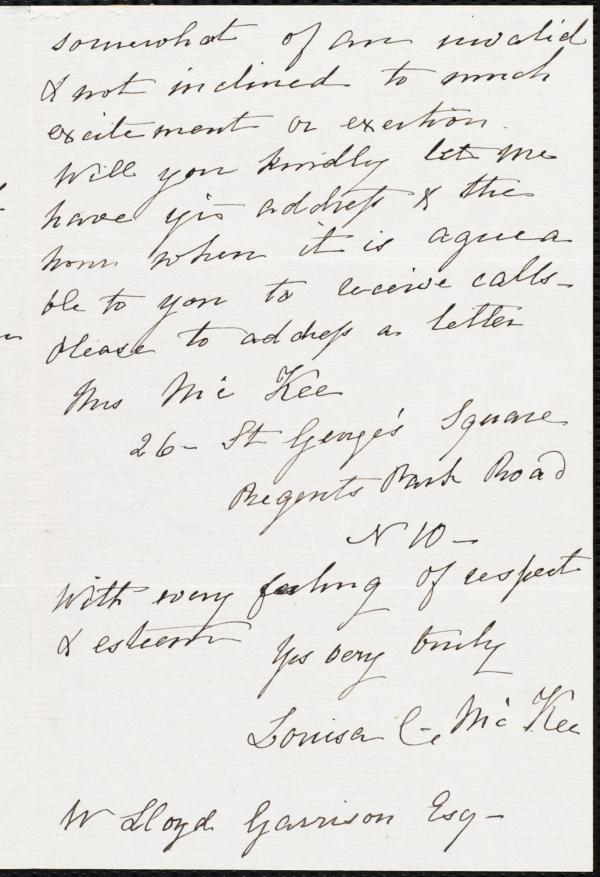 somewhat of an invalid
& not inclined to much
excitement or exertion.
Will you kindly let me
have yr address & the
hour when it is agreea
ble to you to receive calls—
Please to address a letter
Mrs Mc Kee
26— St George's Square
Regents Park Road
N W—
With every feeling of respect
& esteem
Yrs very truly
Louisa C. Mc Kee
W Lloyd Garrison Esq—